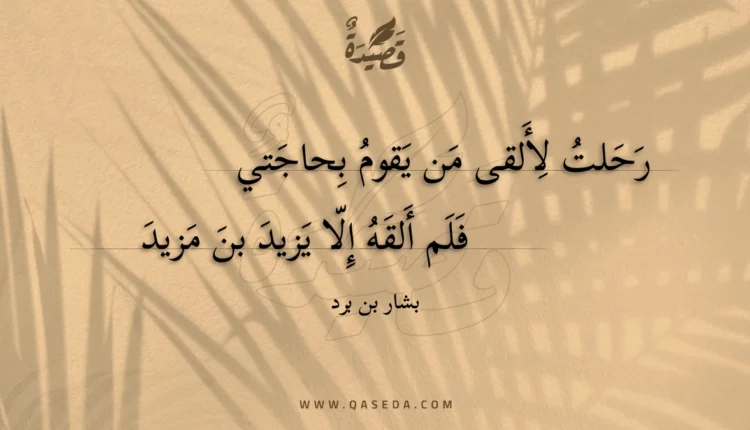 قَصِيْدَةٌ
رَحَلتُ لِأَلقى مَن يَقومُ بِحاجَتي
فَلَم أَلقَهُ إِلّا يَزيدَ بنَ مَزيدَ
بشار بن برد
WWW.QASEDA.COM